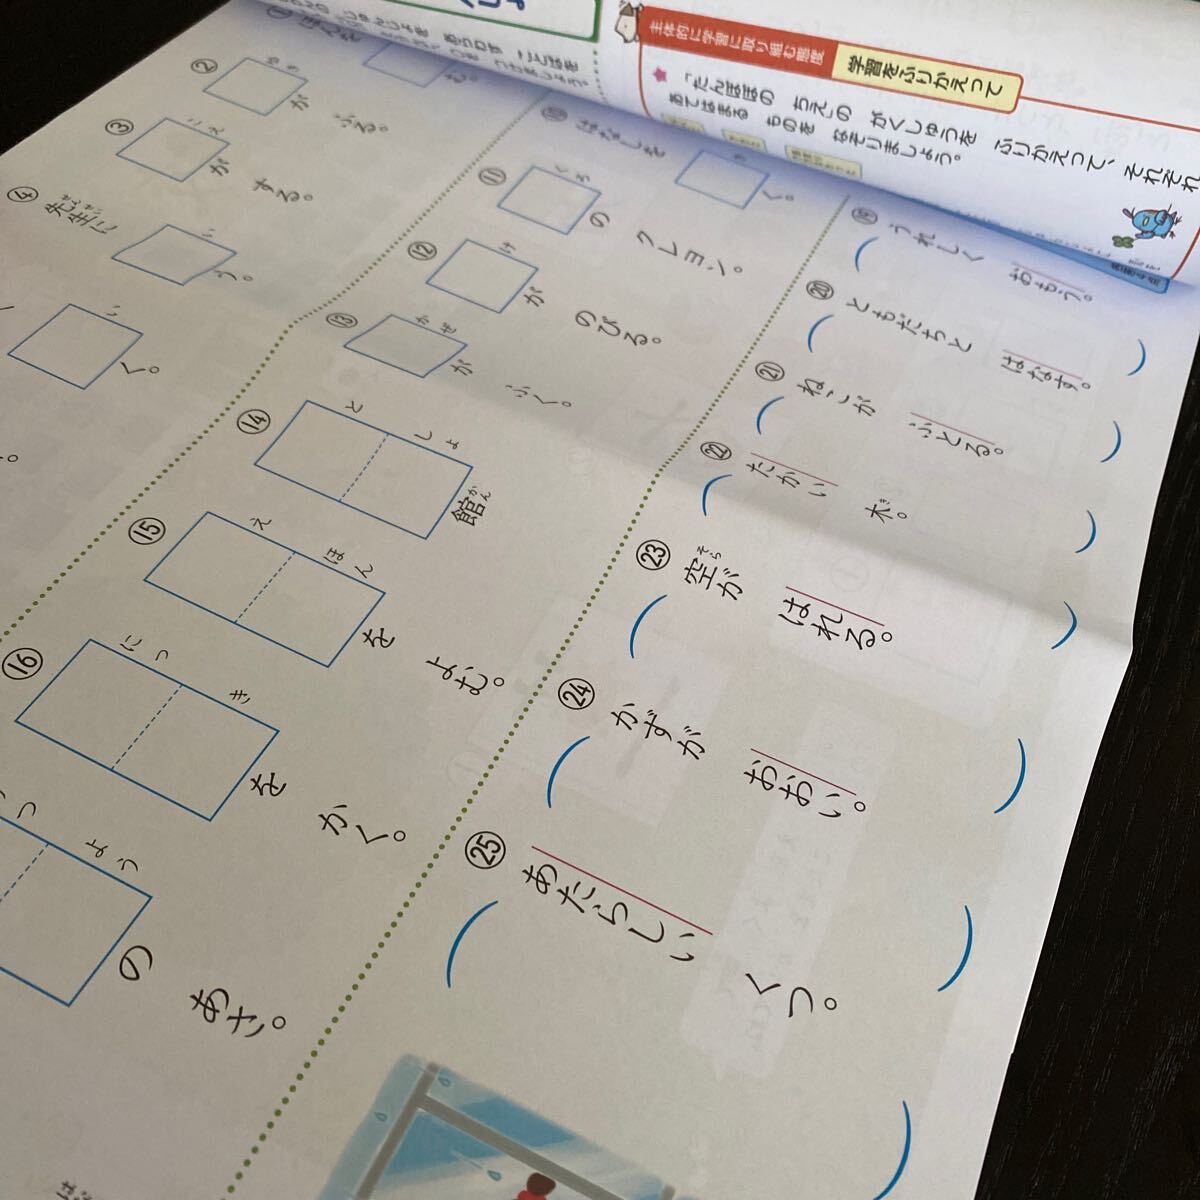 主体的に学習に取り組む態度
学習をふりかえって
★「たんぽぽの ちえの がくしゅうを ふりかえって、それぞれ
あてはまる ものを なぞりましょう。
② ゆき が ふる。
③ こえ が する。
④ 先生に い う。
せんせい
い く。
⑩ はなしを き く。
⑪ くろ の クレヨン。
⑫ け が のびる。
⑬ かぜ が ふく。
⑭ としょ 館
かん
⑮ えほん を よむ。
⑯ にっき を かく。
つよう の あさ。
⑲ うれしく おもう。
⑳ ともだちと はなす。
㉑ ねこが ふとる。
㉒ たかい 木。
き
㉓ 空が はれる。
そら
㉔ かずが おおい。
㉕ あたらしい くつ。